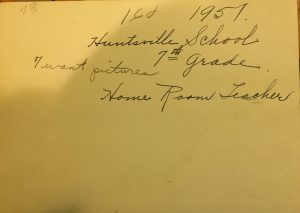 7th
1951.
Huntsville School
7 want pictures 7th Grade.
Home Room Teacher